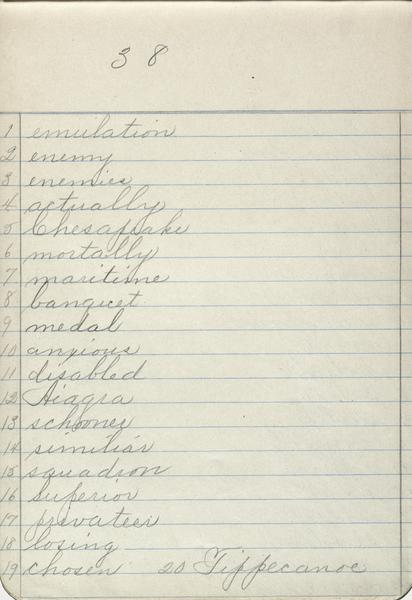 38
1 emulation
2 enemy
3 enemies
4 actually
5 Chesapeake
6 mortally
7 maritime
8 banquet
9 medal
10 anxious
11 disabled
12 Niagra
13 schooner
14 similiar
15 squadron
16 superior
17 privateer
18 losing
19 chosen 20 Tippecanoe